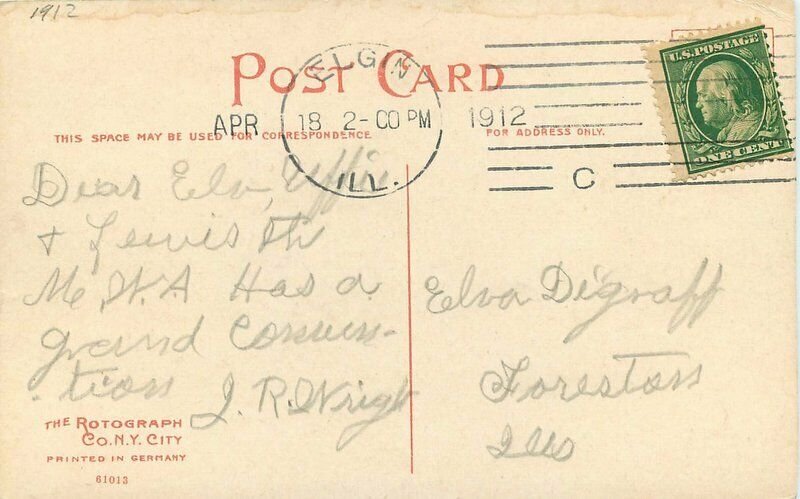 1912
POST CARD
ELGIN
APR 18 2-00 PM 1912
ILL.
C
U.S. POSTAGE
ONE CENT
THIS SPACE MAY BE USED FOR CORRESPONDENCE
FOR ADDRESS ONLY.
Dear Elv, Effie
& Lewis
M. W. A Has a
grand Conven-
tion J. R. Wright
Elva Digraff
Foreston
Ills
THE ROTOGRAPH
CO. N.Y. CITY
PRINTED IN GERMANY
61013